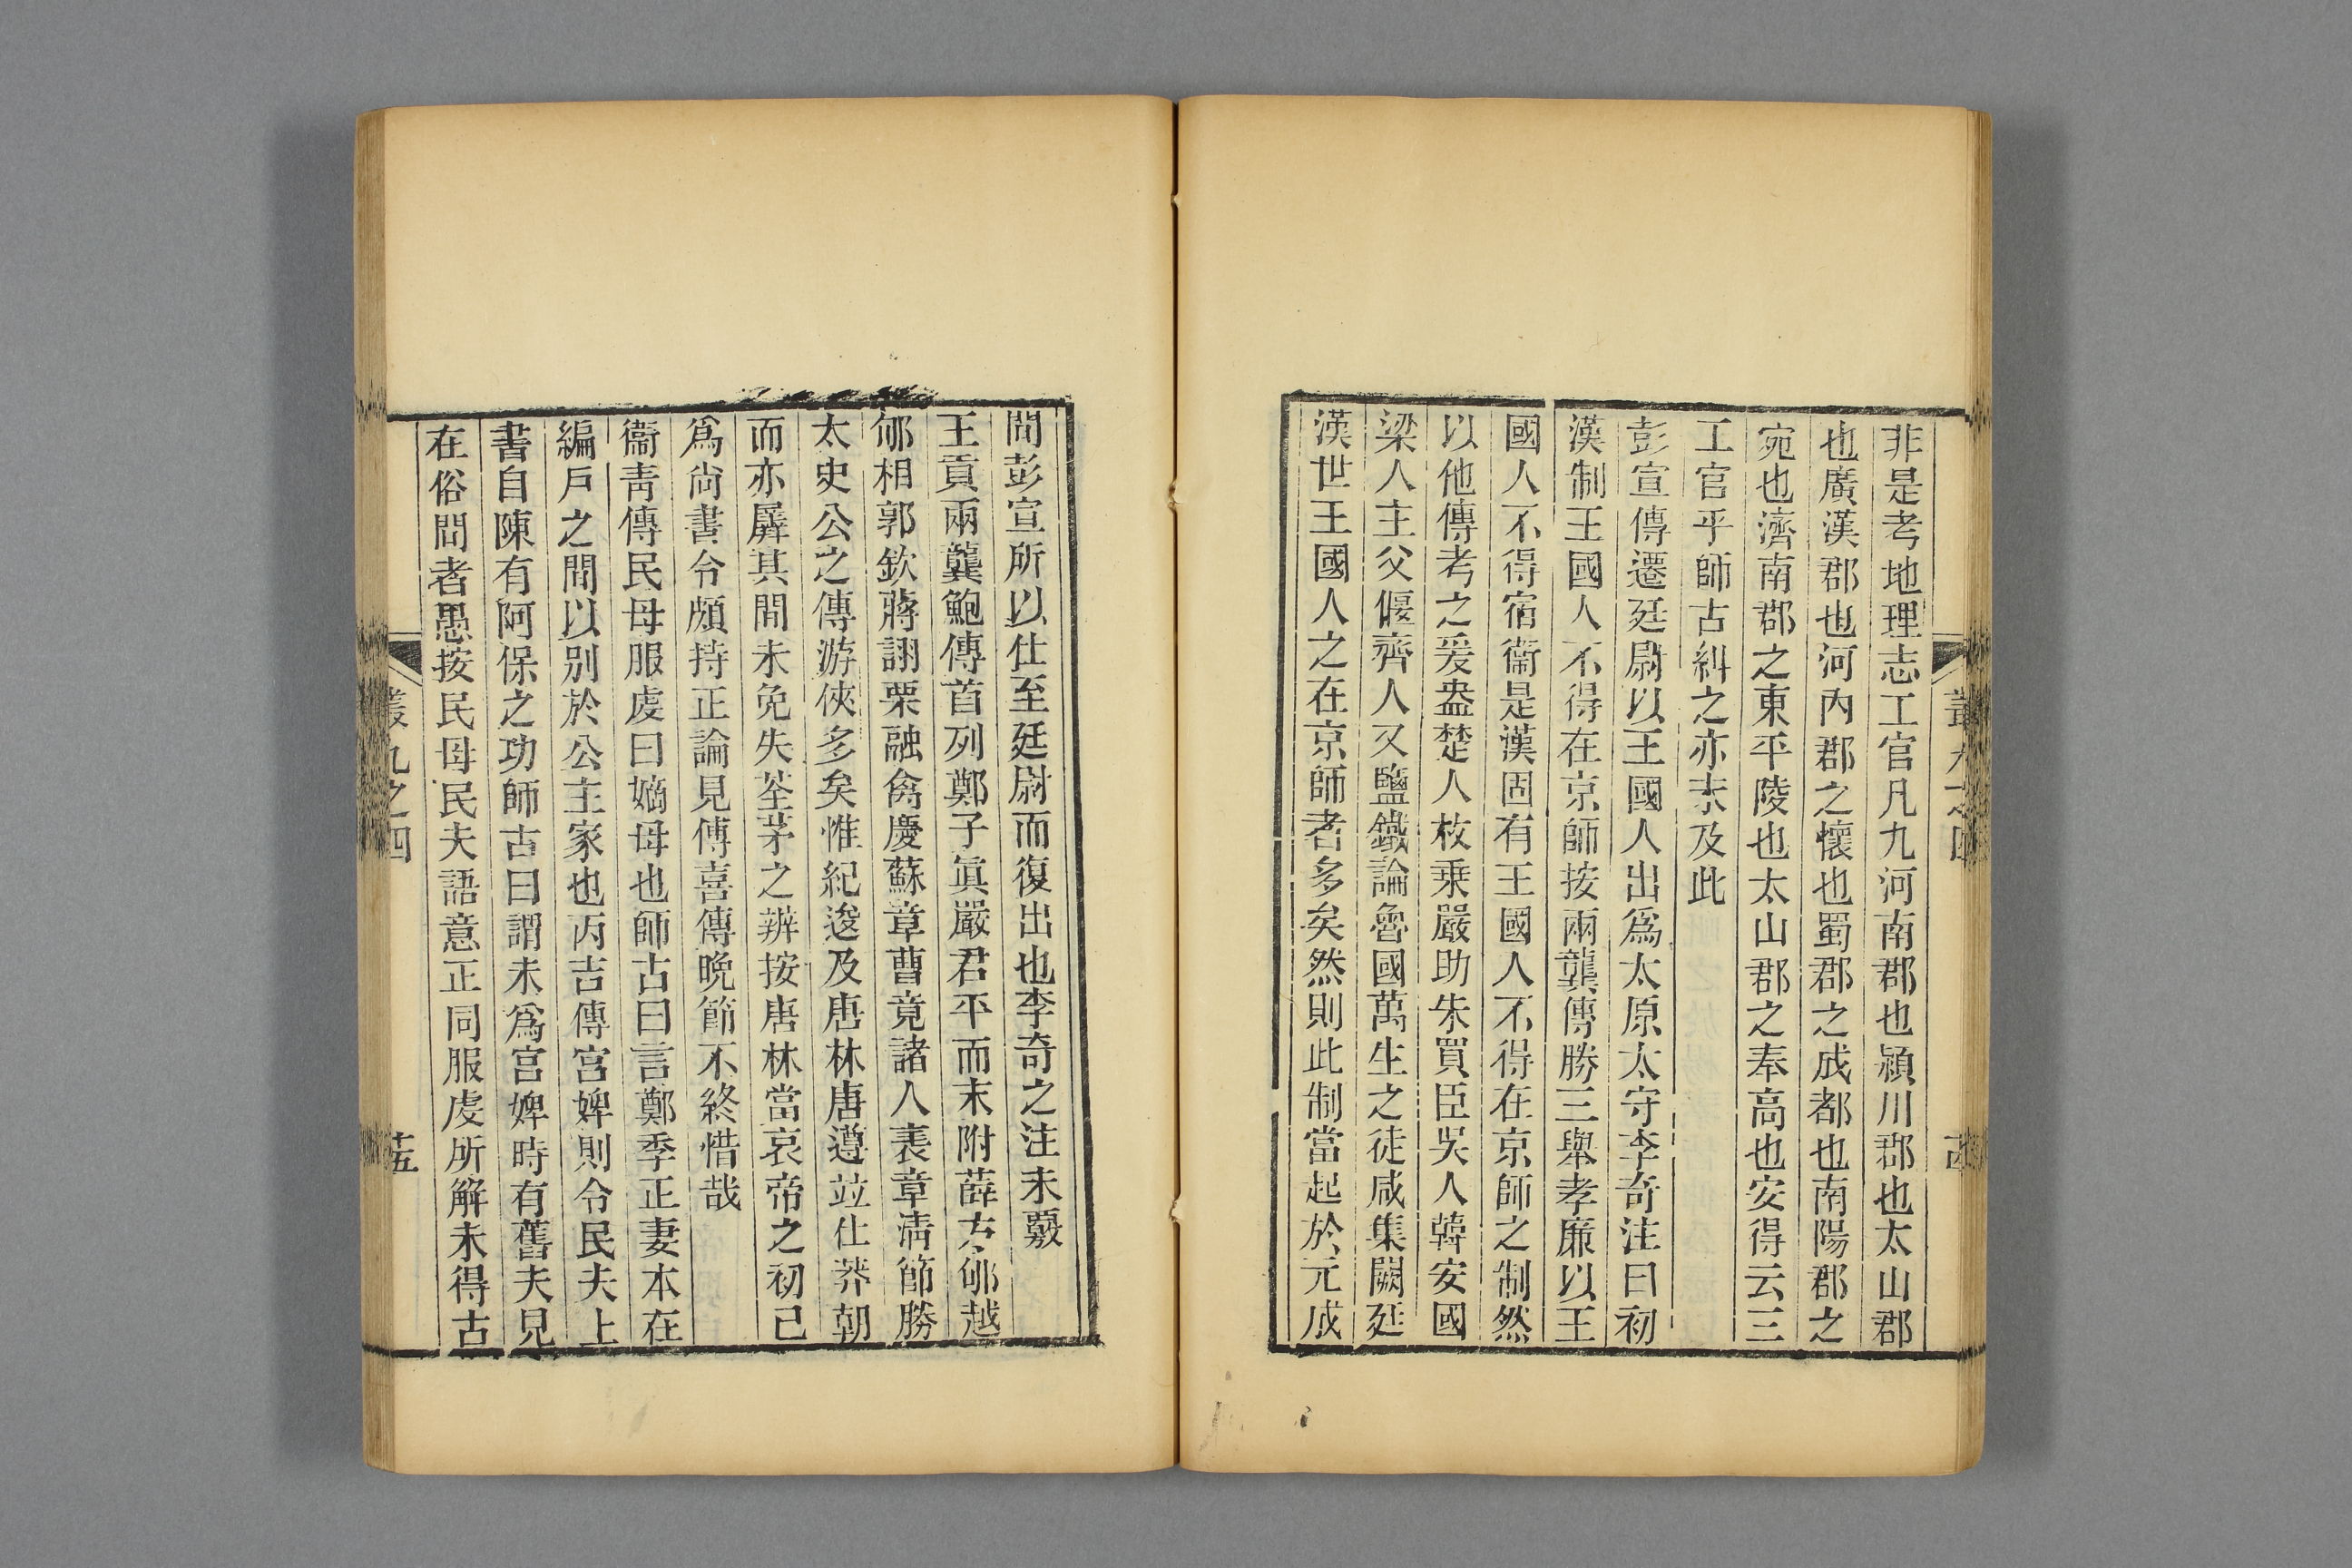 非是考地理志工官凡九河南郡也潁川郡也太山郡
也廣漢郡也河內郡之懷也蜀郡之成都也南陽郡之
宛也濟南郡之東平陵也太山郡之奉高也安得云三
工官乎師古糾之亦未及此
彭宣傳遷廷尉以王國人出爲太原太守李奇注曰初
漢制王國人不得在京師按兩龔傳勝三舉孝廉以王
國人不得宿衞是漢固有王國人不得在京師之制然
以他傳考之爰盎楚人枚乗嚴助朱買臣吳人韓安國
梁人主父偃齊人又鹽鐵論魯國萬生之徒咸集闕廷
漢世王國人之在京師者多矣然則此制當起於元成
間彭宣所以仕至廷尉而復出也李奇之注未覈
王貢兩龔鮑傳首列鄭子眞嚴君平而末附薛方郇越
郇相郭欽蔣詡栗融禽慶蘇章曹竟諸人表章淸節勝
太史公之傳游俠多矣惟紀逡及唐林唐遵竝仕莽朝
而亦羼其間未免失荃茅之辨按唐林當哀帝之初已
爲尙書令頗持正論見傅喜傳晚節不終惜哉
衞靑傳民母服虔曰嫡母也師古曰言鄭季正妻本在
編戶之間以别於公主家也丙吉傳宮婢則令民夫上
書自陳有阿保之功師古曰謂未爲宮婢時有舊夫見
在俗間者愚按民母民夫語意正同服虔所解未得古
叢九之四